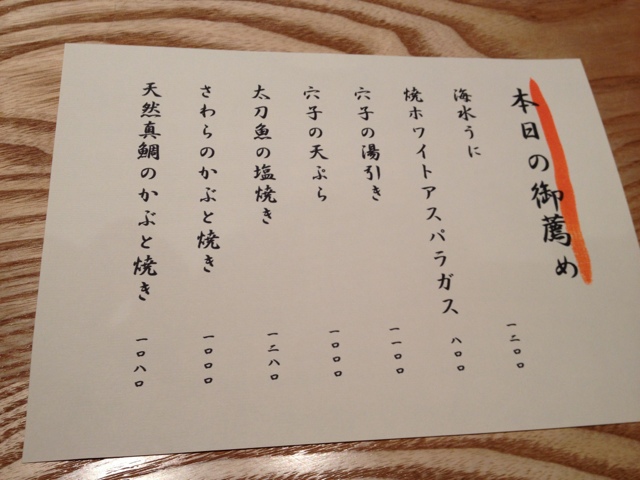 本日の御薦め
海水うに 一二〇〇
焼ホワイトアスパラガス 八〇〇
穴子の湯引き 一一〇〇
穴子の天ぷら 一〇〇〇
太刀魚の塩焼き 一二八〇
さわらのかぶと焼き 一〇〇〇
天然真鯛のかぶと焼き 一〇八〇